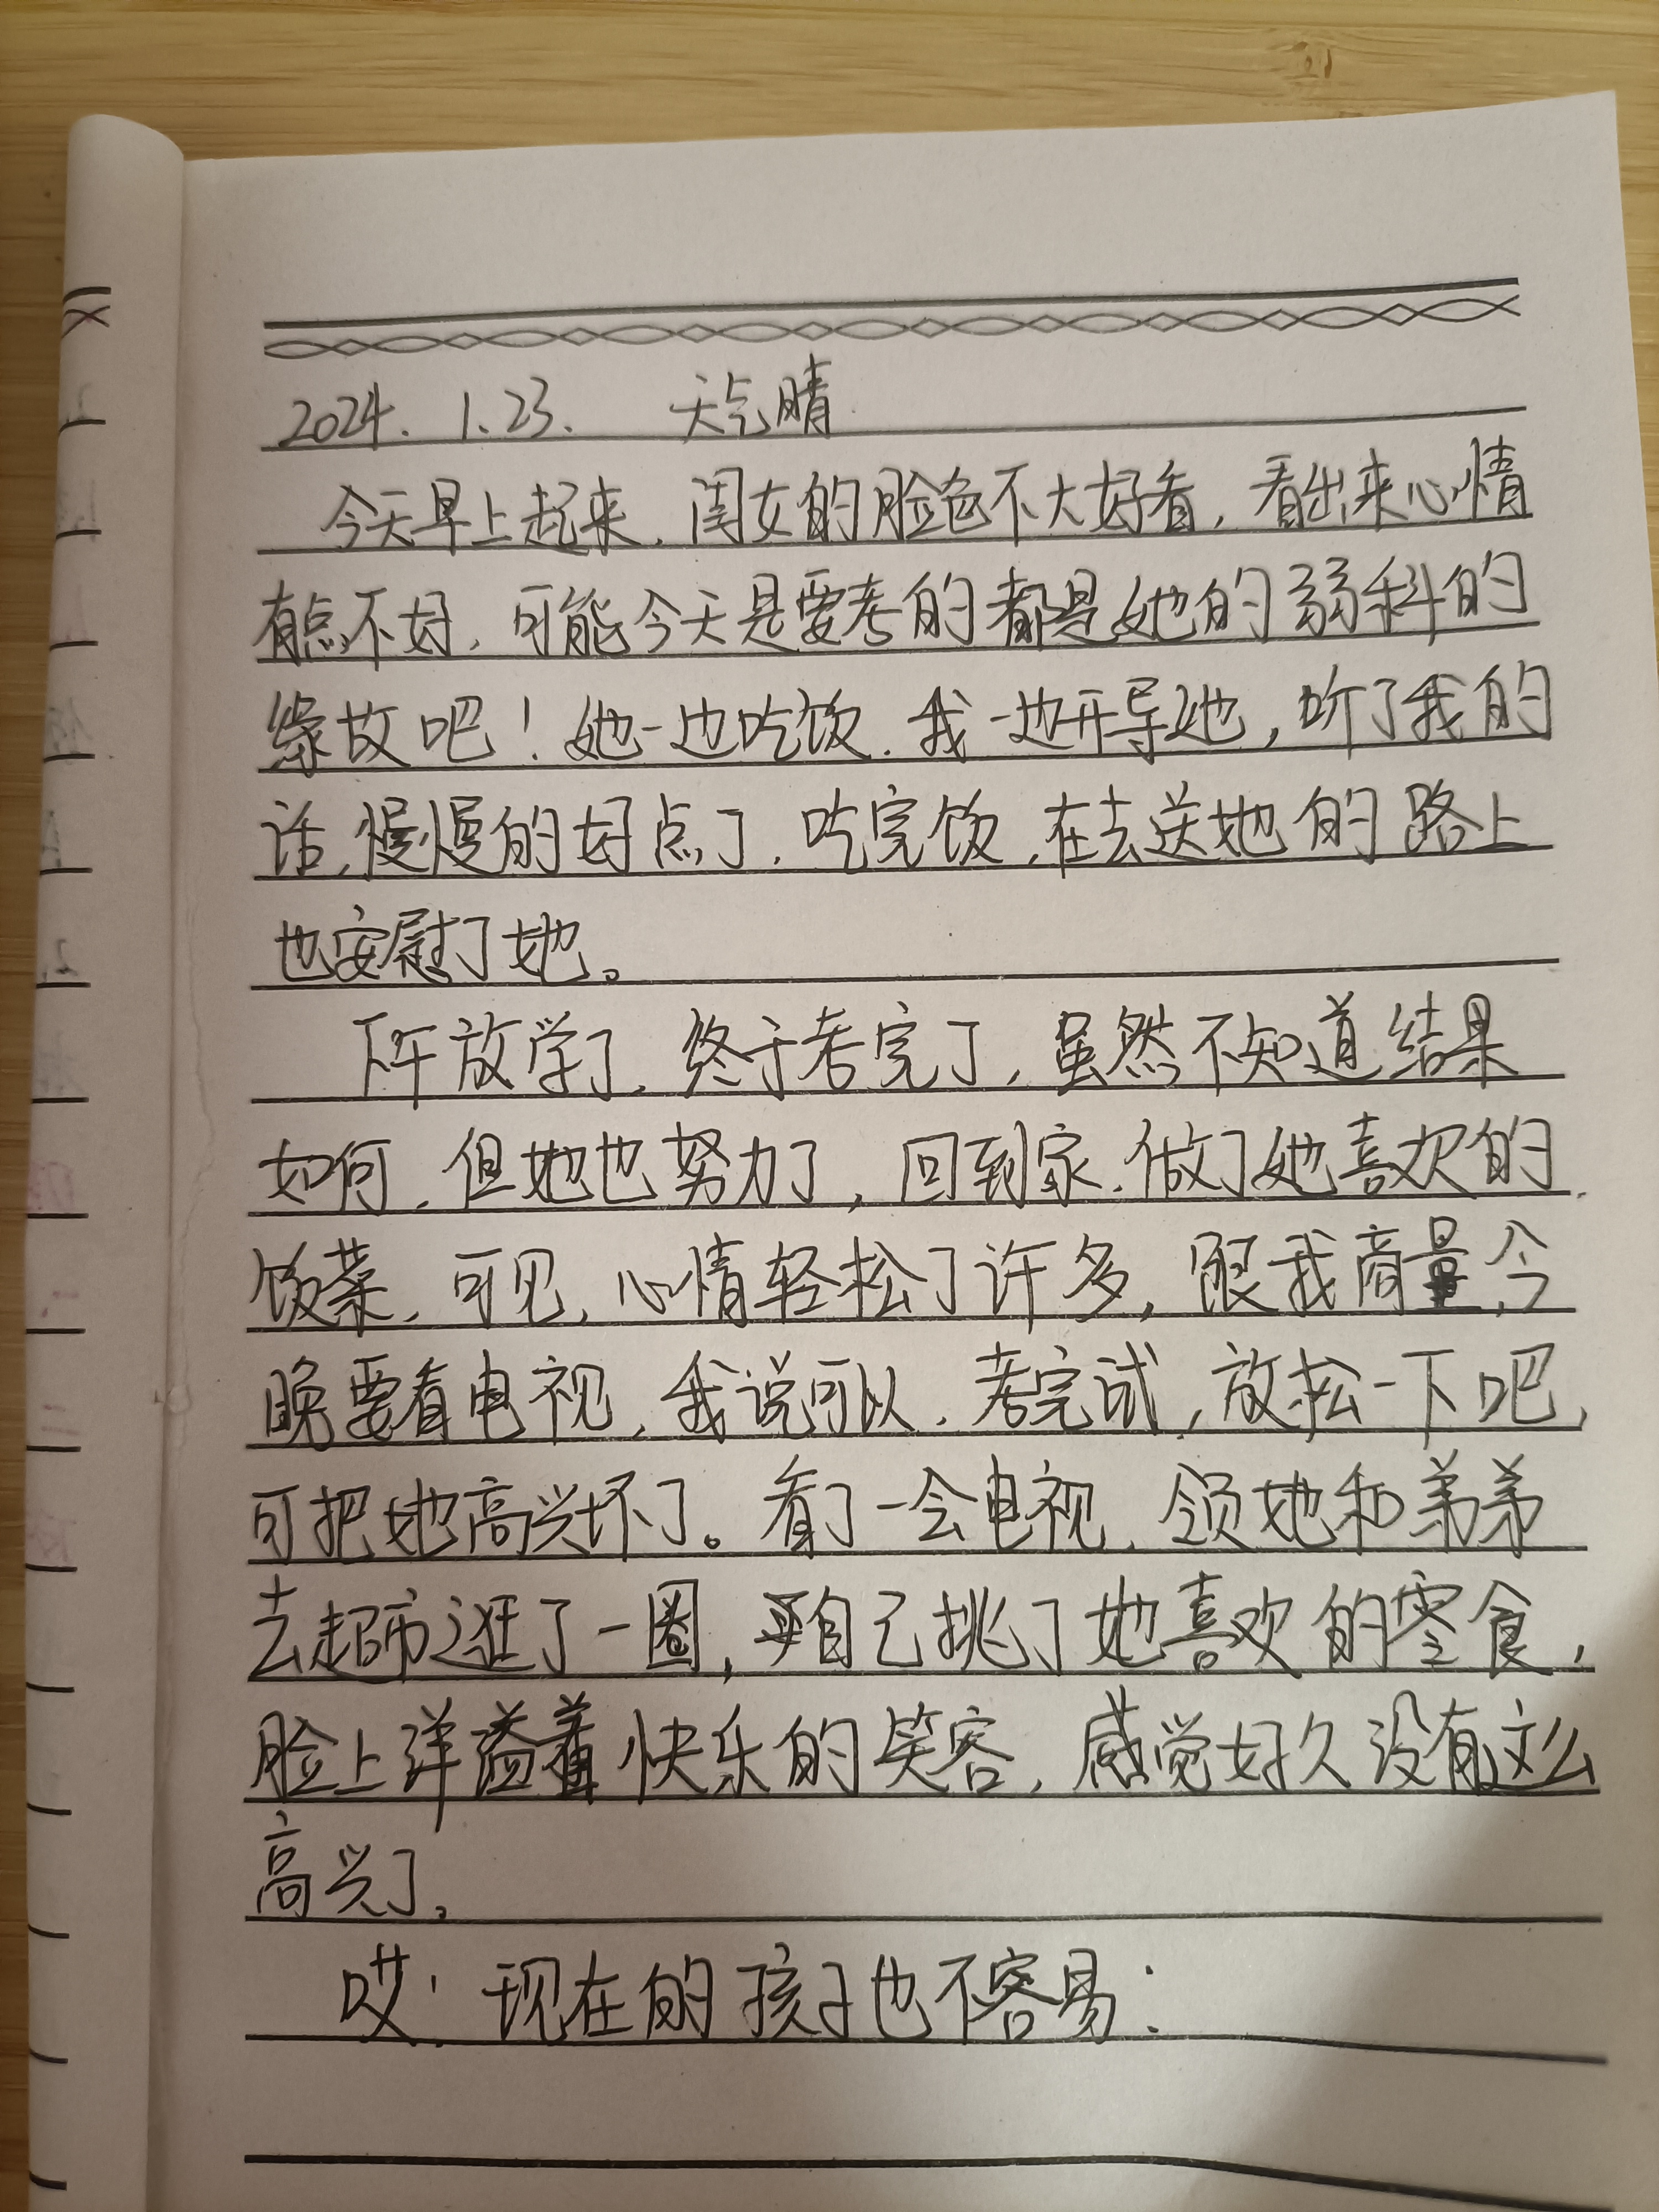 2024. 1.23. 天气晴.
今天早上起来,闺女的脸色不大好看,看出来心情
有点不好,可能今天是要考的都是她的弱科的
缘故吧!她一边吃饭,我一边开导她,听了我的
话,慢慢的好点了,吃完饭,在去送她的路上
也安慰了她。
下午放学了,终于考完了,虽然不知道结果
如何,但她也努力了,回到家,做了她喜欢的
饭菜,可见,心情轻松了许多,跟我商量,今
晚要看电视,我说可以,考完试,放松一下吧,
可把她高兴坏了。看了一会电视,领她和弟弟
去超市逛了一圈,自己挑了她喜欢的零食,
脸上洋溢着快乐的笑容,感觉好久没有这么
高兴了。
哎!现在的孩子也不容易: